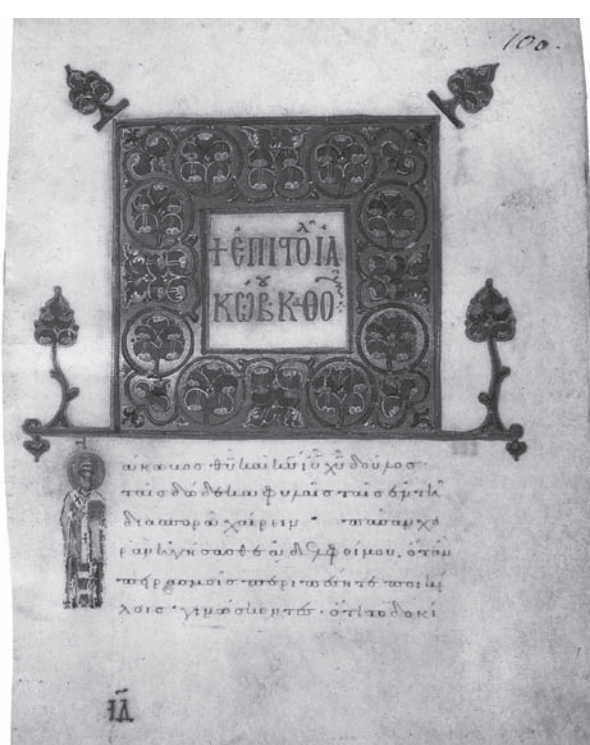 100.
+ ἐπιϛο̑λ ἰα
κώβου καθολ
ἀκωβοσ θῦ καὶ κῦ ἰῦ χῦ δοῦλοσ·
ταῖσ δώδεκα φυλαῖσ ταῖσ ἐν τῆ
διασπορᾶ χαίρειν· πᾶσαν χα
ρὰν ἡγήσασθε ἀδελφοί μου, ὅταν
πειρασμοῖσ περιπέσητε ποικί
λοισ· γινώσκοντεσ· ὅτι τὸ δοκί
ΙΔ